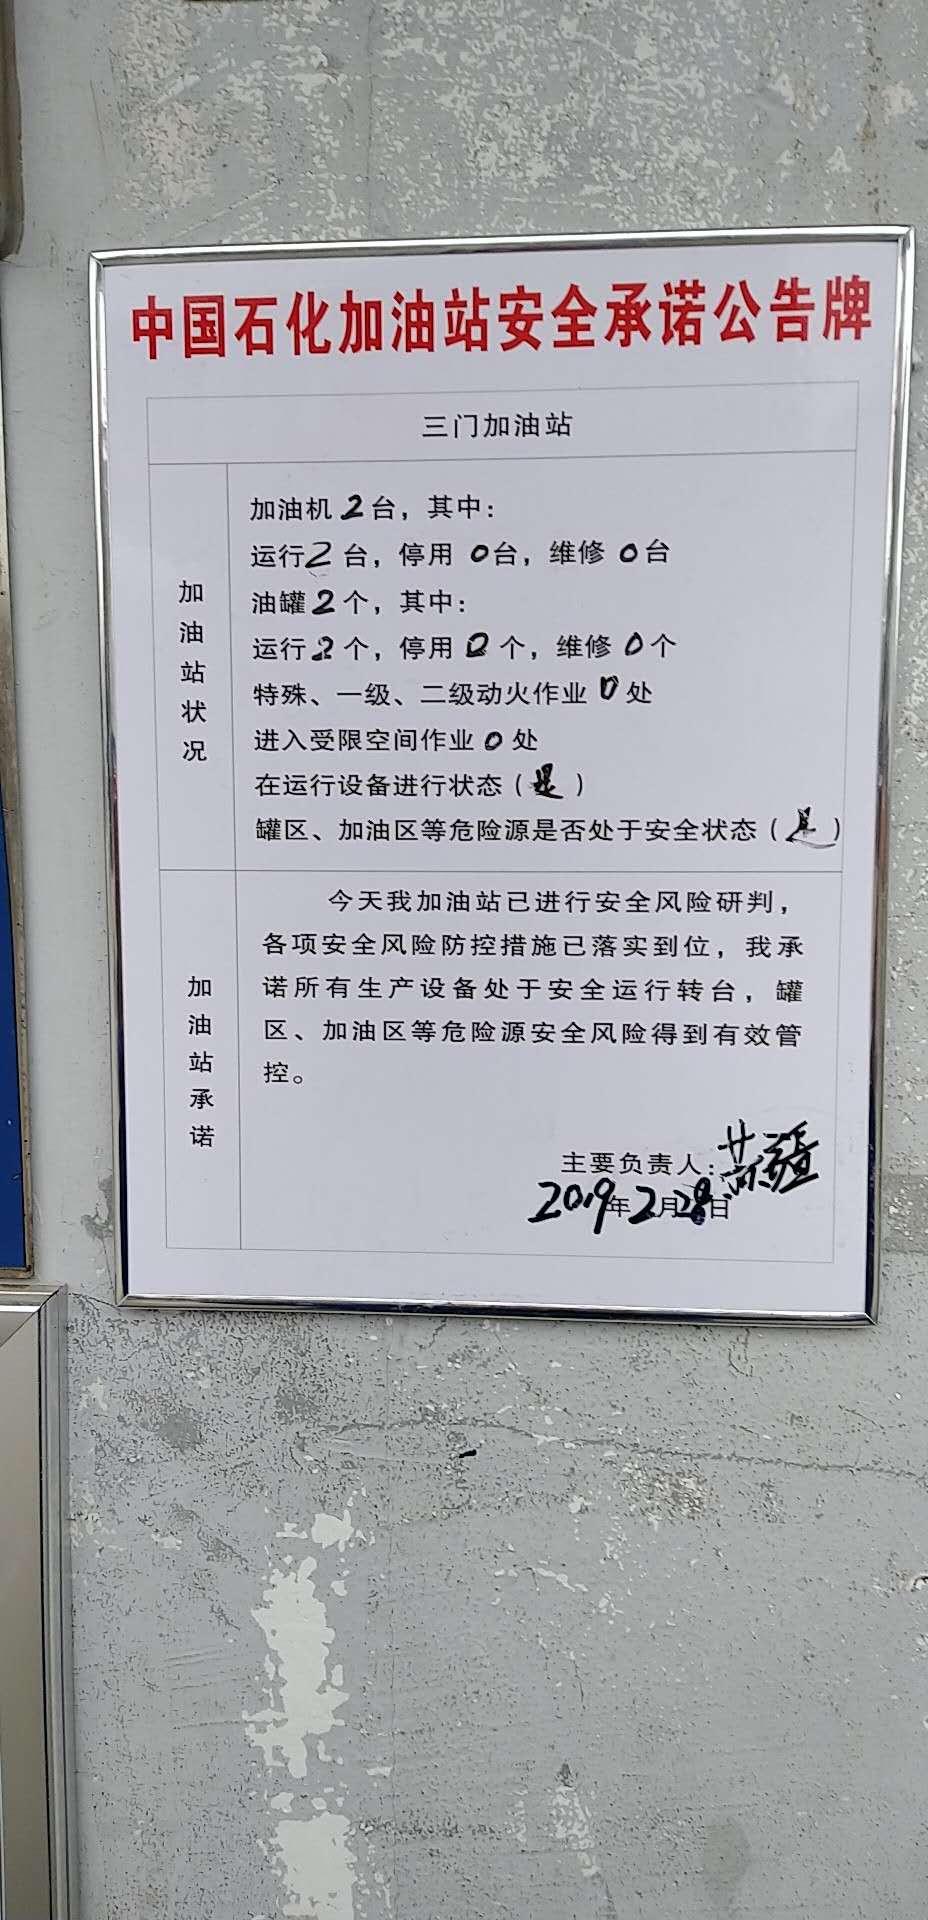 中国石化加油站安全承诺公告牌
三门加油站
加油站状况
加油机2台，其中：
运行2台，停用0台，维修0台
油罐2个，其中：
运行2个，停用0个，维修0个
特殊、一级、二级动火作业0处
进入受限空间作业0处
在运行设备进行状态（是）
罐区、加油区等危险源是否处于安全状态（是）
加油站承诺
今天我加油站已进行安全风险研判，
各项安全风险防控措施已落实到位，我承
诺所有生产设备处于安全运行转台，罐
区、加油区等危险源安全风险得到有效管
控。
主要负责人：
2019年2月28日